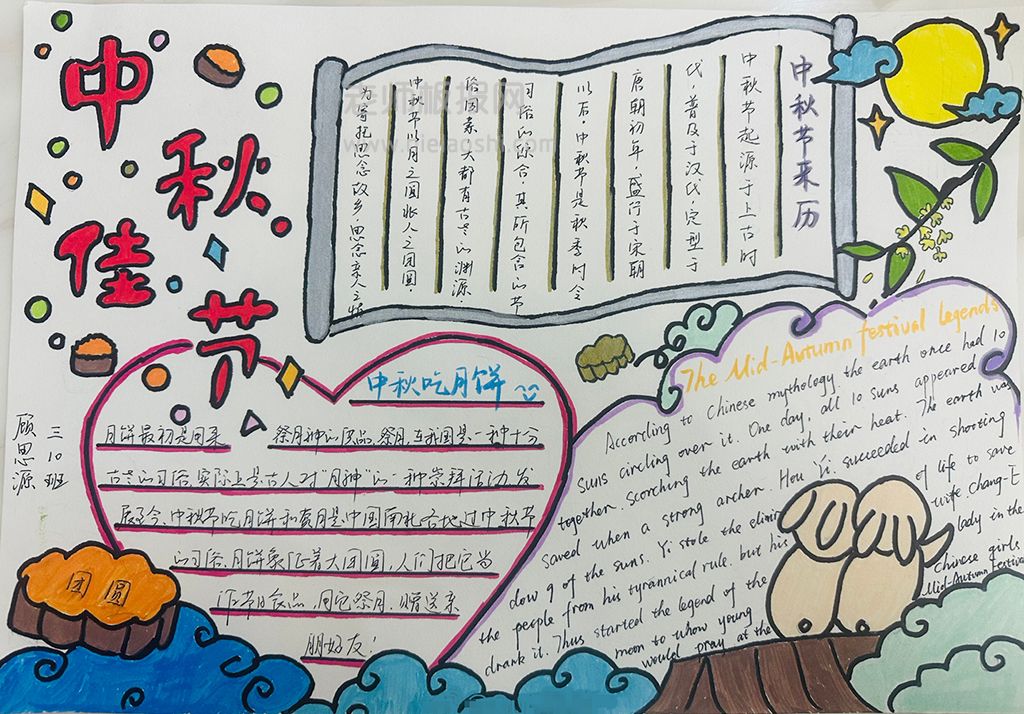 中秋佳节
中秋节来历
中秋节起源于上古时
代，普及于汉代，定型于
唐朝初年，盛行于宋朝
以后。中秋节是秋季时令
习俗的综合，其所包含的节
俗因素，大都有古老的渊源
中秋节以月之圆兆人之团圆，
为寄托思念故乡，思念亲人之情
老师板报网
顾思源
三10班
中秋吃月饼
月饼最初是用来 祭月神的供品，祭月，在我国是一种十分
古老的习俗，实际上是古人对“月神”的一种崇拜活动，发
展至今，中秋节吃月饼和赏月是中国南北各地过中秋节
的习俗，月饼象征着大团圆，人们把它当
作节日食品，用它祭月、赠送亲
朋好友！
团圆
The Mid-Autumn festival Legends
According to Chinese mythology, the earth once had 10
suns circling over it. One day, all 10 suns appeared
together, scorching the earth with their heat. The earth was
saved when a strong archer. Hou Yi. succeeded in shooting
dow 9 of the suns. Yi stole the elimir of life to save
the people from his tyrannical rule. but his wife, Chang-E
drank it. Thus started the legend of the lady in the
moon to whow young Chinese girls
would pray at the Mid-Autumn Festival